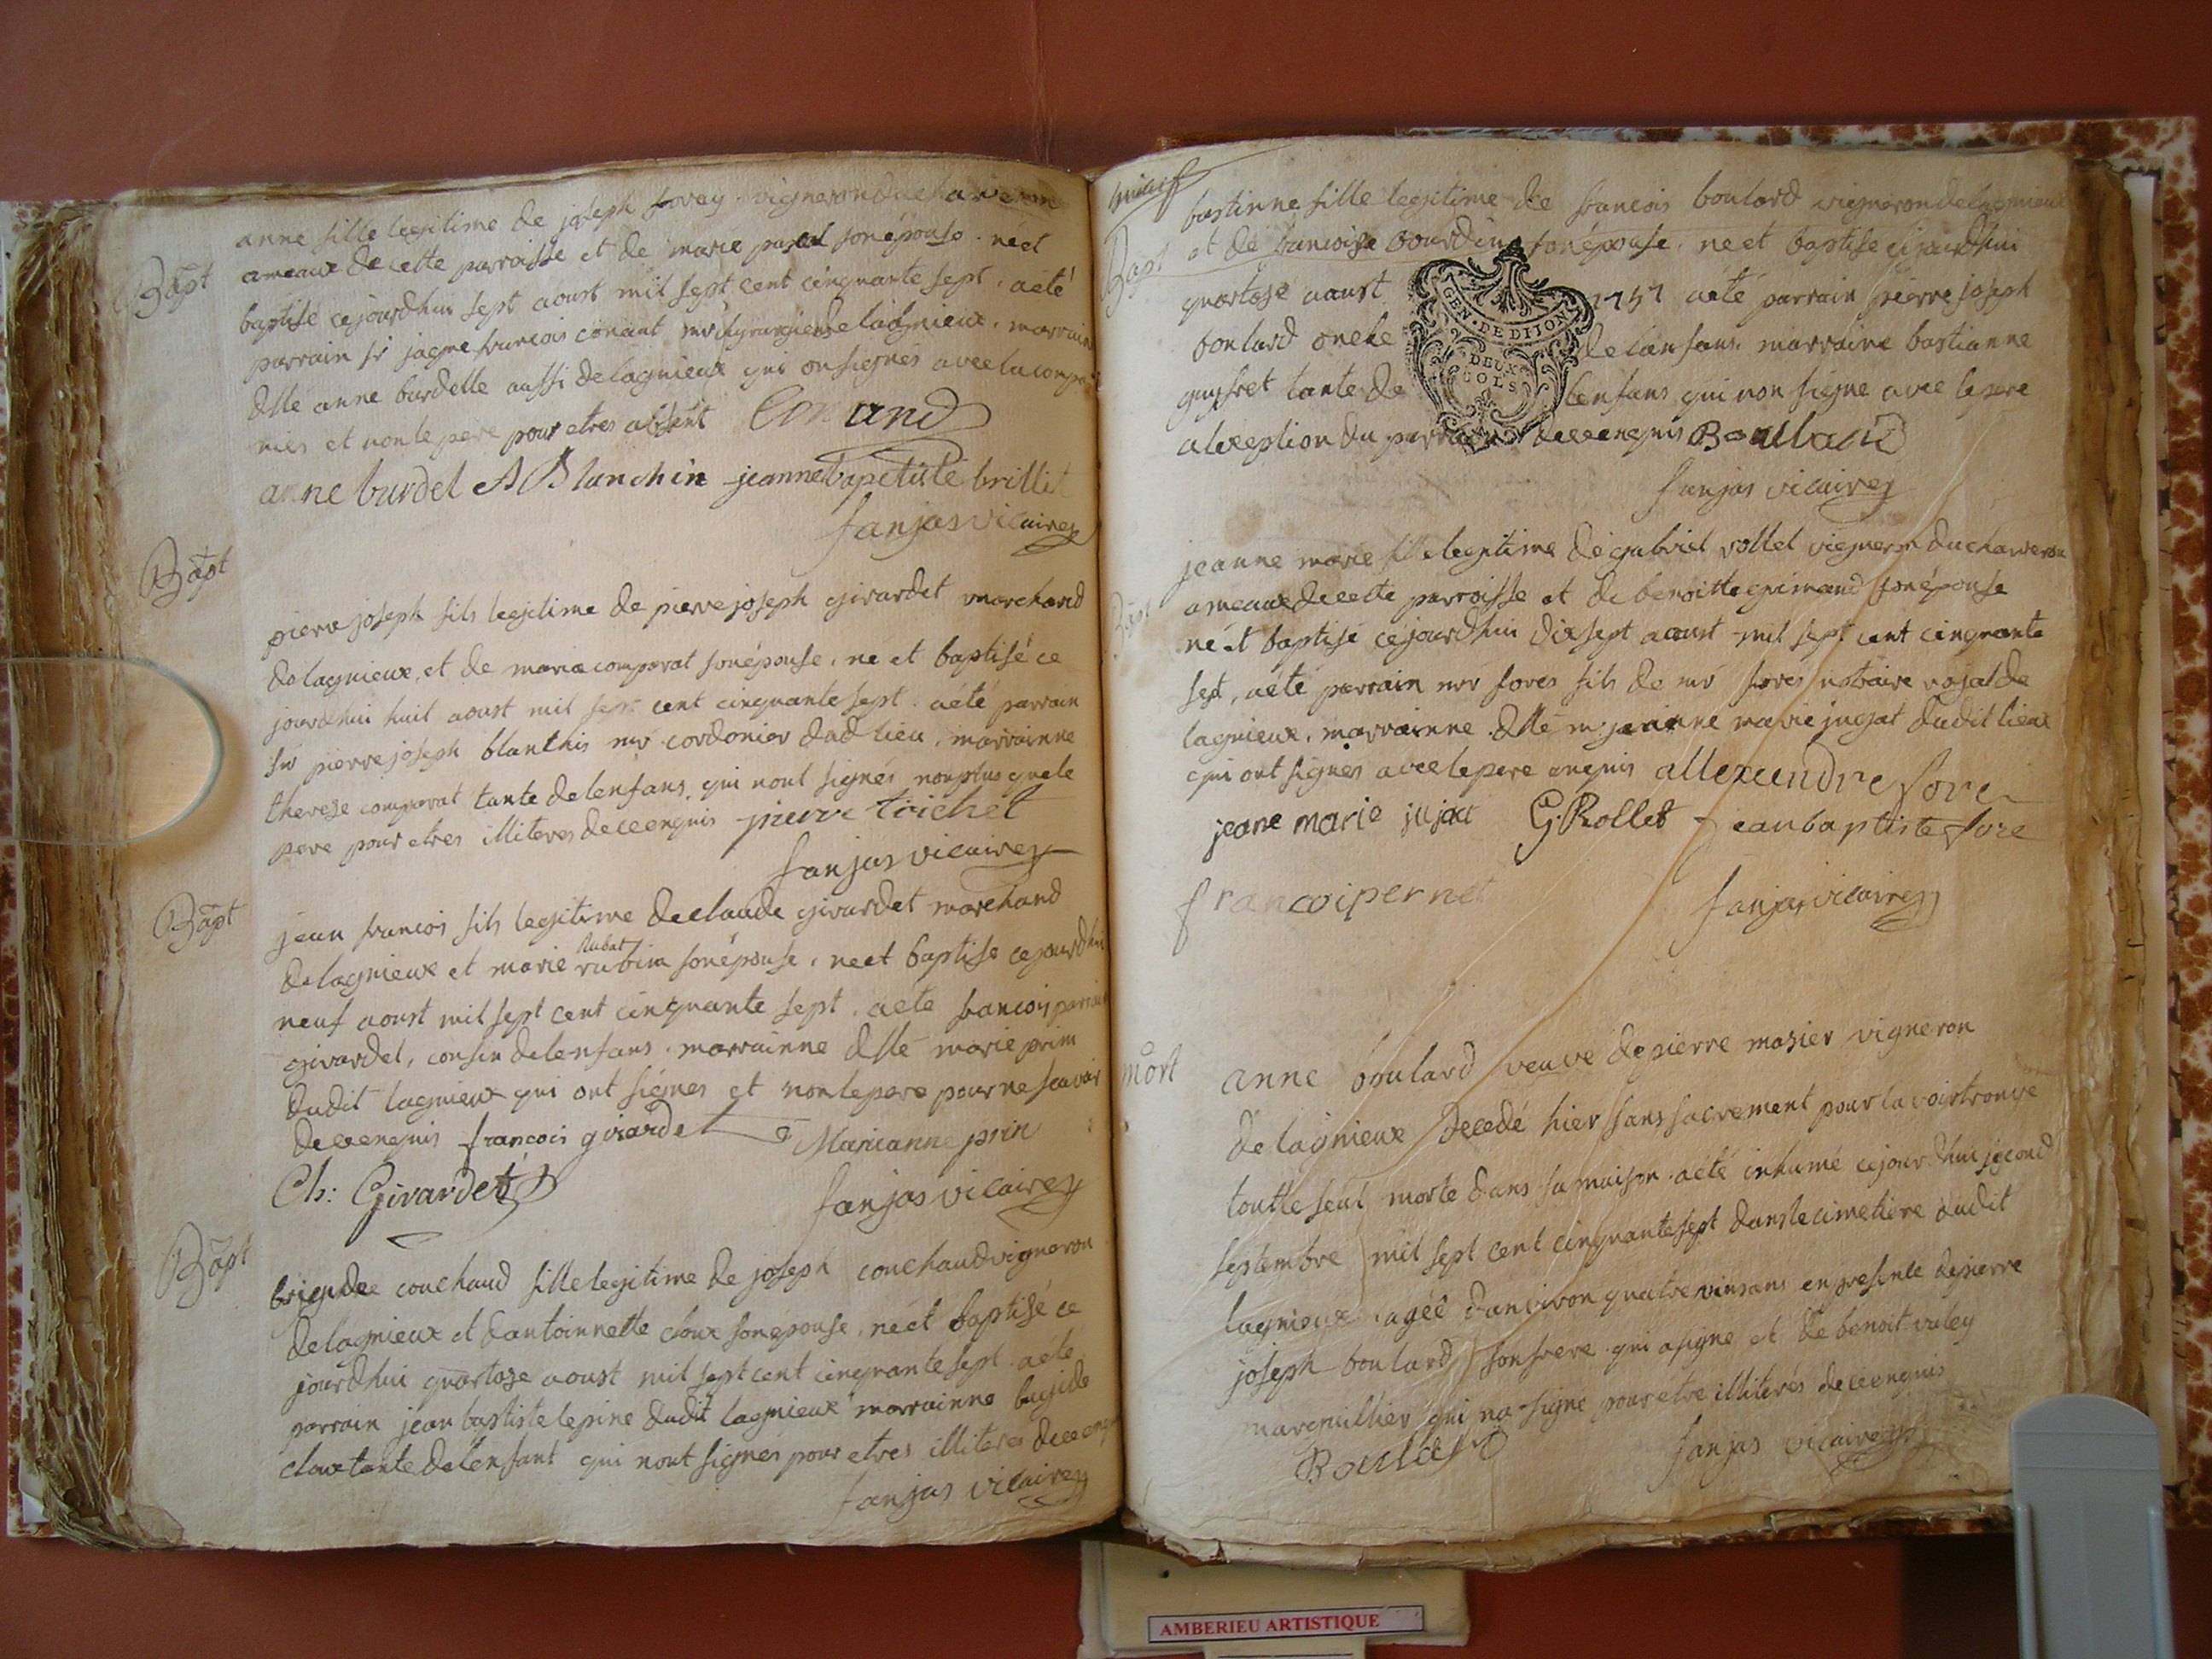 Bapt
anne fille legitime de joseph vigneron du charveron
ameaux de cette parroisse et de marie son épouse . né et
baptisé cejourdhui sept aoust mil sept cent cinquante sept . a été
parrain sr jaque francois conant mr chyrurgien de lagnieux . marraine
dlle anne burdelle aussi de lagnieux qui on signés avec la compa
nies et non le pere pour etres absent Conand
anne burdel A Blanchin jeanne baptiste brillit
fanjas vicaire
Bapt
pierre joseph fils legitime de pierre joseph girardet marchand
de lagnieux, et de marie comparat son épouse . ne et baptisé ce
jourdhui huit aoust mil sept cent cinquante sept . a été parrain
sr pierre joseph blanchis mr cordonier dud lieu . marrainne
therese comparat tante de lenfans qui nont signés non plus que le
pere pour etres illiteres de ce enquis pierre trichet
fanjas vicaire
Bapt
jean francois fils legitime de claude girardet marchand
Rubat
de lagnieux et marie rubin son épouse . ne et baptise cejourdhui
neuf aoust mil sept cent cinquante sept . a ete francois parrain
girardet, cousin de lenfans . marrainne dlle marie prin
dudit lagnieux qui ont signes et non le pere pour ne scavoir
de ce enquis francois girardet Marianne prin
Ch: Girardet
fanjas vicaire
Bapt
brigidee couchaud fille legitime de joseph couchaud vigneron
de lagnieux et dantoinnette cloux son epouse . né et baptisé ce
jourdhui quartoze aoust mil sept cent cinquante sept . a éte
parrain jean baptiste lepine dudit lagnieux marrainne brigide
cloux tante de lenfant qui nont signés pour etres illiteres de ce enquis
fanjas vicaire
Bapt
bastinne fille legitime de francois boulard vigneron de lagnieux
et de francoise bourdin son épouse . ne et baptise cejourdhui
quartose aoust 1757 a été parrain pierre joseph
boulard oncle de lenfans . marraine bastianne
guyfret tante de lenfans qui non signe avec le pere
a lexeption du parrain de ce enquis Boulard
GEN · DE DIJON
DEUX
SOLS
fanjas vicaire
Bapt
jeanne marie fille legitime de gabriel rollet vigneron du charveron
ameaux de cette parroisse et de benoitte grimaud son épouse
né et baptisé cejourdhui dixsept aoust mil sept cent cinquante
sept, a été parrain mr fores fils de mr fores notaire rojal de
lagnieux . marrainne . dlle m: jeanne marie jujat dudit lieux
qui ont signes avec le pere enquis allexandre fore
jeane marie jujat G. Rollet jean baptiste fore
francoi pernet fanjas vicaire
mort
anne boulard veuve de pierre masier vigneron
de lagnieux decedé hier sans sacrement pour lavoir trouvé
toutte seul morte dans sa maison . a été inhumé cejourdhui second
septembre mil sept cent cinquante sept dans le cimetiere dudit
lagnieux . agée danviron quatre vins ans en presence de pierre
joseph boulard son frere qui a signe et de benoit
marguillier qui na signe pour etre illiterés de ce enquis
Boulard fanjas vicaire
AMBERIEU ARTISTIQUE